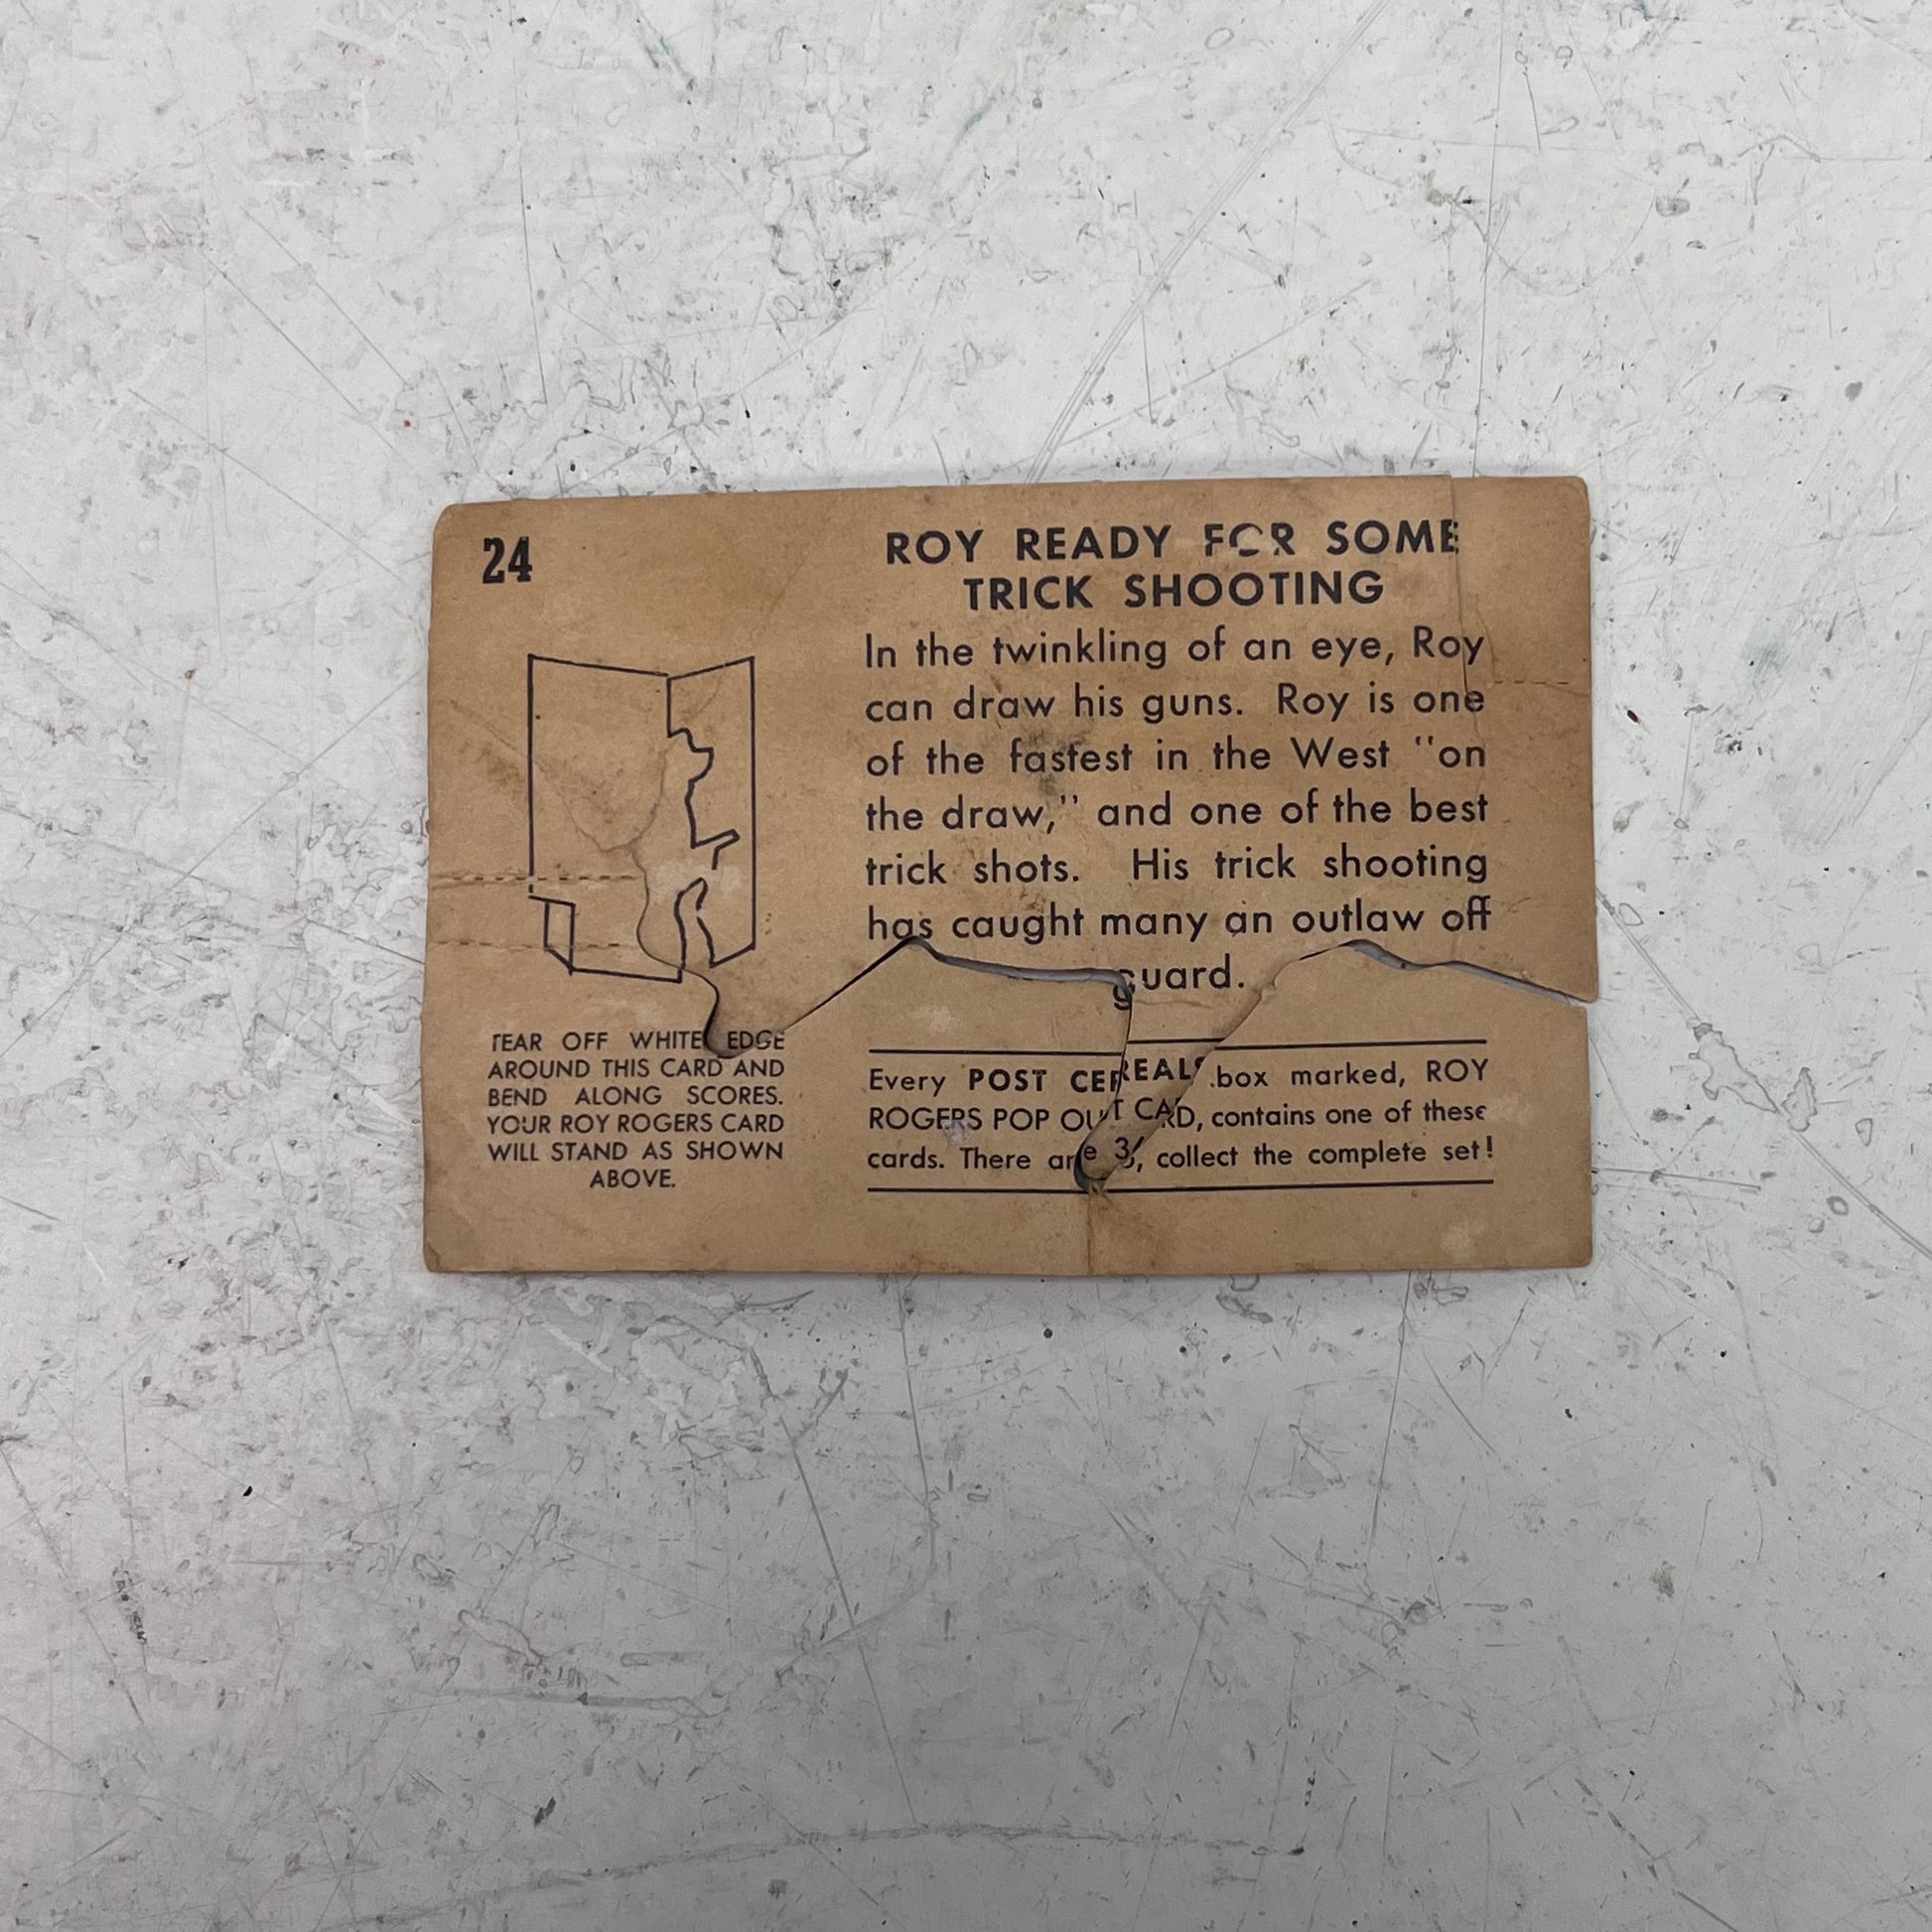 24
ROY READY FOR SOME
TRICK SHOOTING
In the twinkling of an eye, Roy
can draw his guns. Roy is one
of the fastest in the West "on
the draw," and one of the best
trick shots. His trick shooting
has caught many an outlaw off
guard.
TEAR OFF WHITE EDGE
AROUND THIS CARD AND
BEND ALONG SCORES.
YOUR ROY ROGERS CARD
WILL STAND AS SHOWN
ABOVE.
Every POST CEREALS box marked, ROY
ROGERS POP OUT CARD, contains one of these
cards. There are collect the complete set!